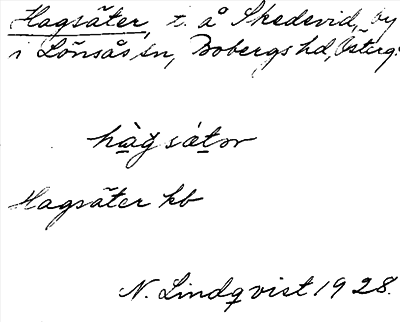 Hagsäter, t. å Skedevid, by
i Lönsås sn, Bobergs hd, Österg.
hàğ sátər
Hagsäter kb
N. Lindqvist 1928.